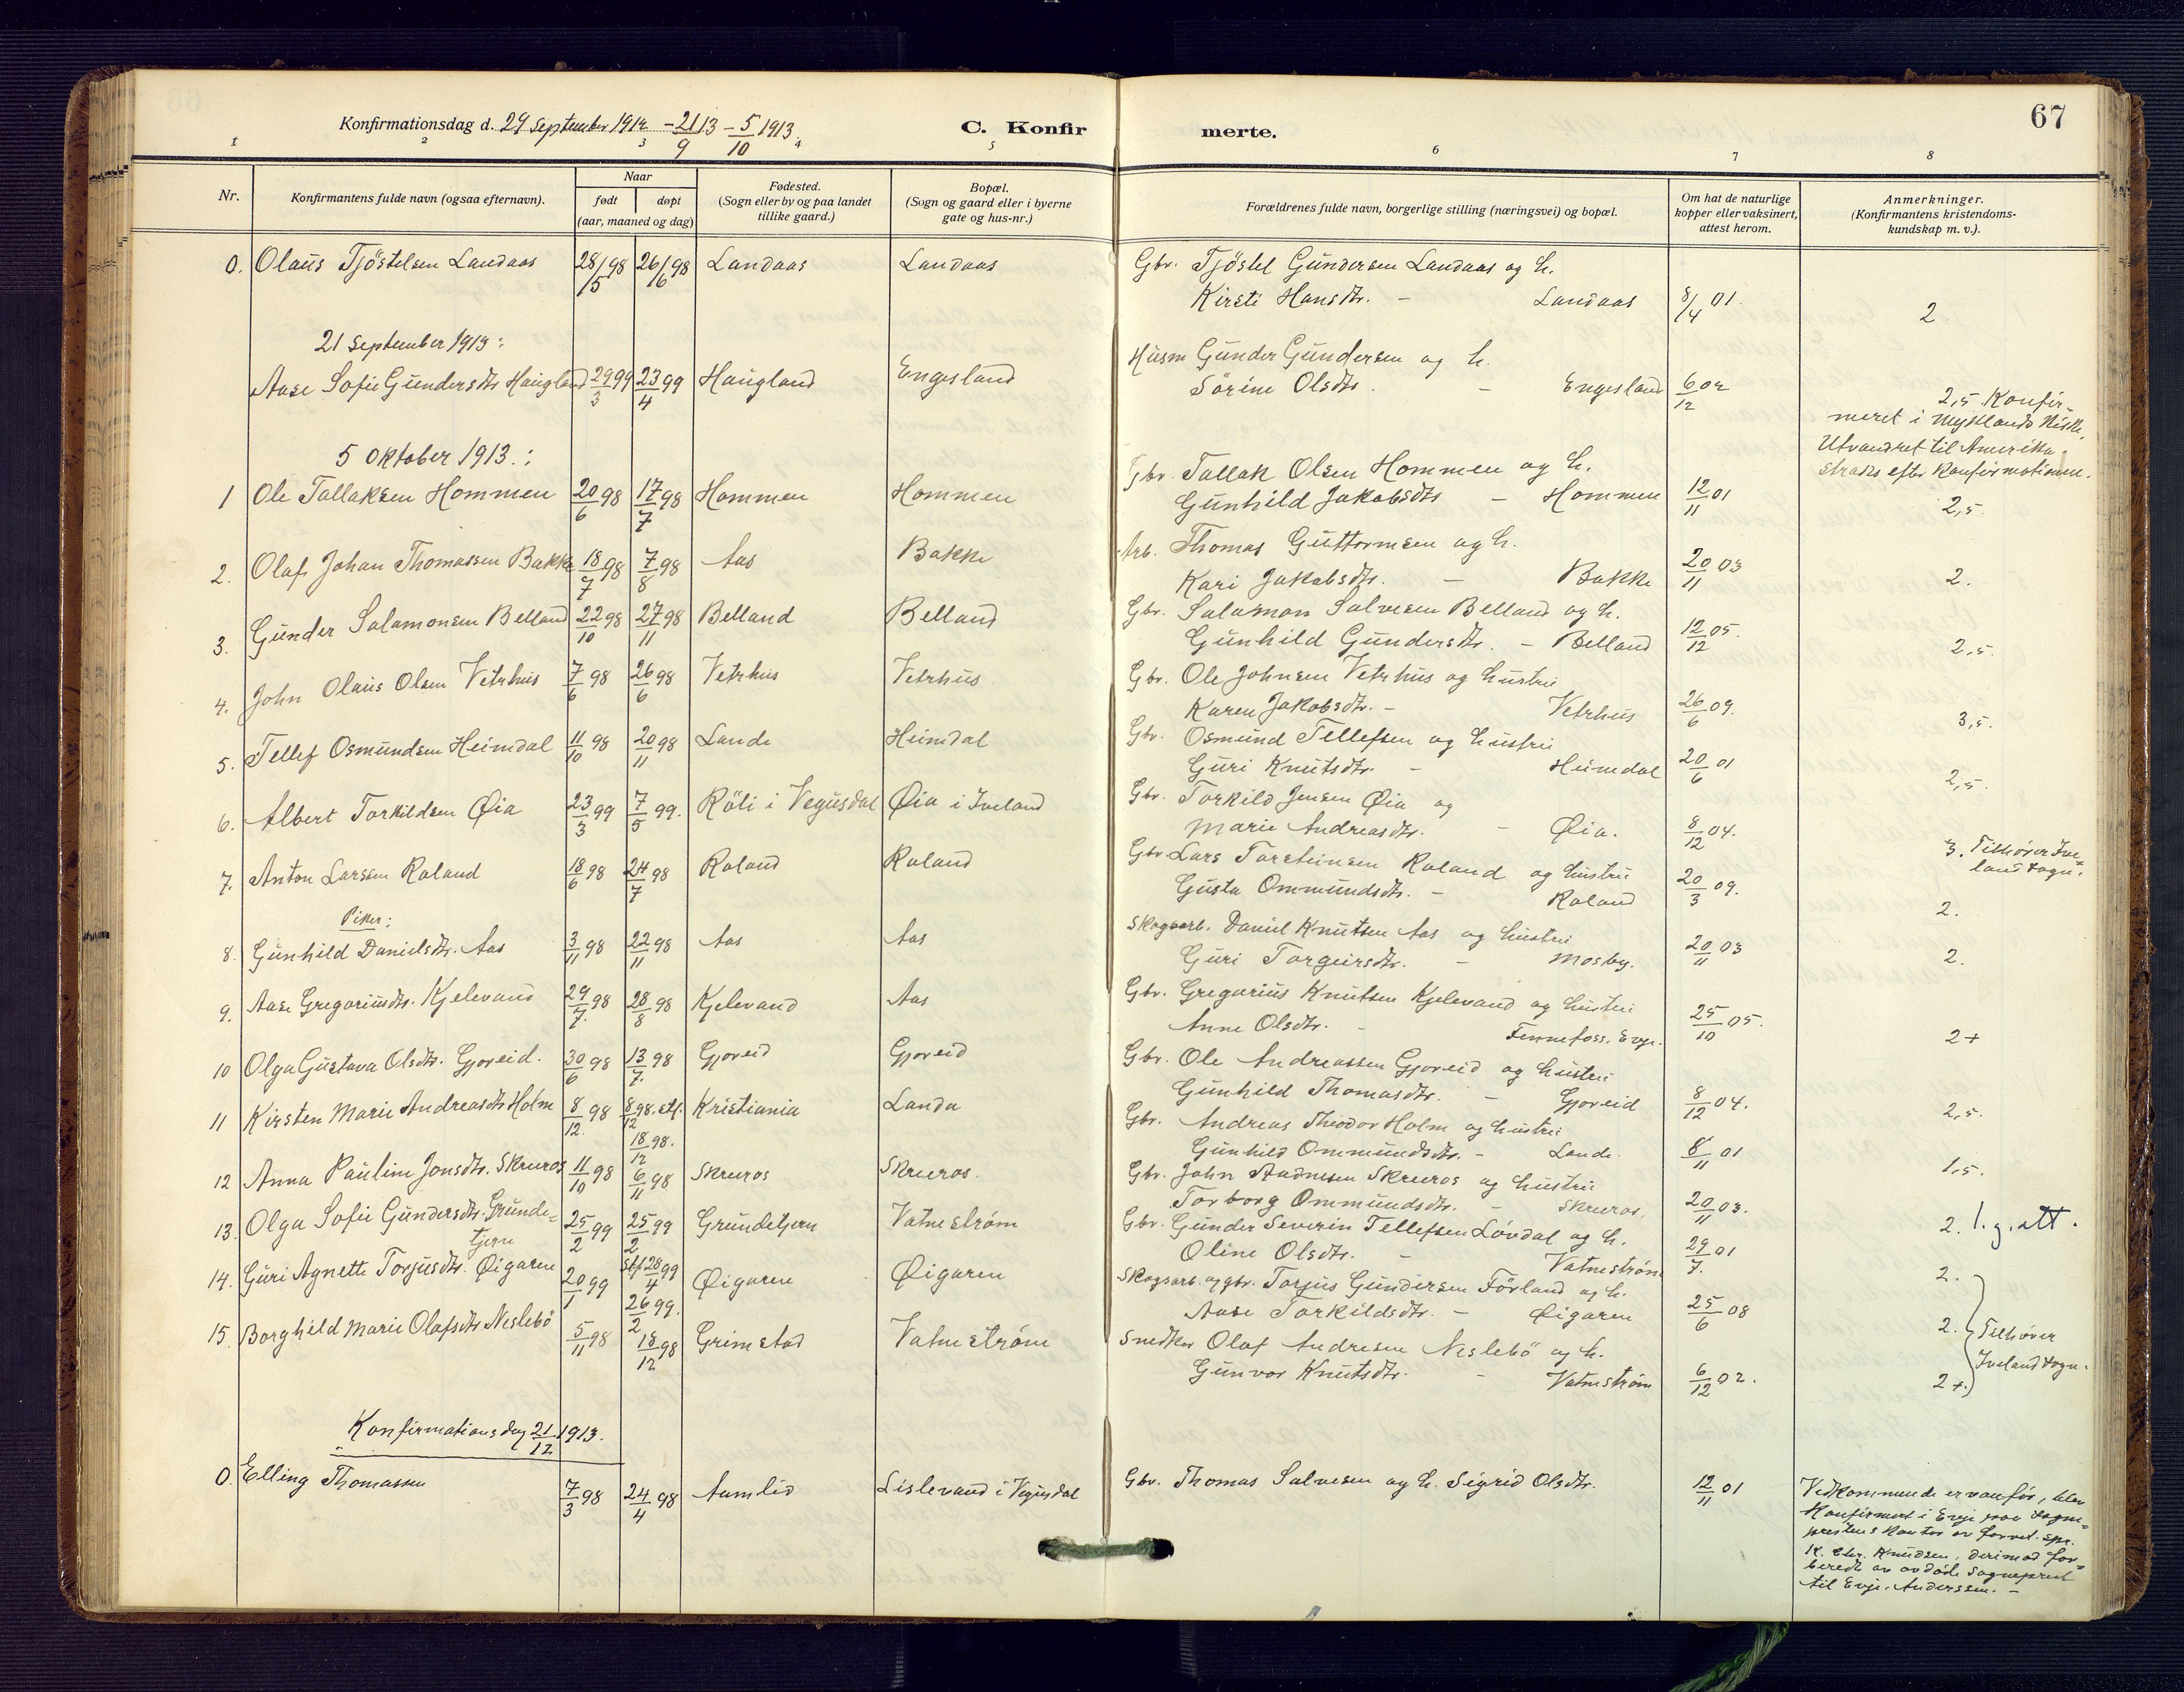 67
Konfirmationsdag d. 29 September 1912 - 21/9 13 - 5/10 1913.
C. Konfir merte.
1 2 3 4 5 6 7 8
Nr. Konfirmantens fulde navn (ogsaa efternavn). Naar født døpt (aar, maaned og dag) Fødested. (Sogn eller by og paa landet tillike gaard.) Bopæl. (Sogn og gaard eller i byerne gate og hus-nr.) Forældrenes fulde navn, borgerlige stilling (næringsvei) og bopæl. Om hat de naturlige kopper eller vaksinert, attest herom. Anmerkninger. (Konfirmantens kristendoms-kundskap m. v.).
0. Olaus Tjöstelsen Landaas 28/5 98 26/6 98 Landaas Landaas Gbr. Tjöstel Gundersen Landaas og h.
Kirsti Hansdtr. - Landaas 8/4 01. 2
21 September 1913:
Aase Sofie Gundersdtr Haugland 29/3 99 23/4 99 Haugland Engesland Husm Gunder Gundersen og h.
Sörine Olsdtr. - Engesland 6/12 02 2,5. Konfir-
meret i Myklands Kirke.
Utvandret til Amerika
straks efter Konfirmationen.
5 Oktober 1913.:
1 Ole Tallaksen Hommen 20/6 98 17/7 98 Hommen Hommen Gbr. Tallak Olsen Hommen og h.
Gunhild Jakobsdtr - Hommen 12/11 01 2,5.
2. Olaf Johan Thomassen Bakke 18/7 98 7/8 98 Aas Bakke Arb. Thomas Guttormsen og h.
Kari Jakobsdtr. - Bakke 20/11 03 2.
3. Gunder Salamonsen Belland 22/10 98 27/11 98 Belland Belland Gbr. Salamon Salvesen Belland og h.
Gunhild Gundersdtr. - Belland 12/12 05. 2,5.
4. John Olaus Olsen Vetrhus 7/6 98 26/6 98 Vetrhus Vetrhus Gbr. Ole Johnsen Vetrhus og hustru
Karen Jakobsdtr. - Vetrhus 26/6 09. 3,5.
5. Tellef Osmundsen Heimdal 11/10 98 20/11 98 Lande Heimdal Gbr. Osmund Tellefsen og hustru
Guri Knutsdtr. - Heimdal 20/6 01 2,5.
6. Albert Torkildsen Øia 23/3 99 7/5 99. Röli i Vegusdal Øia i Iveland Gbr. Torkild Jensen Øia og
Marie Andreasdtr. - Øia. 8/12 04. 3. Tilhører Ive-
land sogn.
7. Anton Larssen Raland 18/6 98 24/7 98 Raland Raland Gbr Lars Torsteinsen Raland og hustru
Gusta Ommundsdtr. - Raland 20/3 09. 2.
Piker:
8. Gunhild Danielsdtr. Aas 3/11 98 22/11 98 Aas Aas Skogsarb. Daniel Knutsen Aas og hustru
Guri Torgeirsdtr. - Mosby. 20/11 03 2.
9. Aase Gregoriusdtr. Kjelevand 29/7. 98 28/8 98 Kjelevand Aas Gbr. Gregorius Knutsen Kjelevand og hustru
Anne Olsdtr. - Fennefoss, Evje. 25/10 05. 2+
10 Olga Gustava Olsdtr. Gjoreid. 30/6 98 13/7. 98 Gjoreid Gjoreid Gbr. Ole Andreassen Gjoreid og hustru
Gunhild Thomasdtr. - Gjoreid 8/12 04. 2,5.
11 Kirsten Marie Andreasdtr Holm 8/12. 98 8/12 98. stf. 18/12 98. Kristiania Landa Gbr. Andreas Theodor Holm og hustru
Gunhild Ommundsdtr. - Lande. 8/11 01 1,5.
12 Anna Pauline Jonsdtr. Skreros 11/10 98 6/11 98 Skreros Skreros. Gbr. John Aadnesen Skreros og hustru
Torborg Ommundsdtr. - Skreros, 20/11 03. 2. 1. g. att.
13. Olga Sofie Gundersdtr. Grunde-
tjern 25/2 99 25/2 99 Grundetjern Vatneström Gbr. Gunder Severin Tellefsen Lövdal og h.
Oline Olsdtr. - Vatneström 29/7. 01 2.
14. Guri Agnette Torjusdtr. Øigaren 20/1 99 Stf 28/4 99 26/2 99. Øigaren Øigaren Skogsarb. og gbr. Torjus Gundersen Förland og h.
Aase Torkildsdtr. - Øigaren 25/6 08 2. Tilhører
Iveland sogn.
15. Borghild Marie Olafsdtr Neslebö 5/11 98 18/12 98 Grimstad Vatneström Snedker Olaf Andresen Neslebö og h.
Gunvor Knutsdtr. - Vatneström 6/12 02. 2+.
Konfirmationsdag 21/12 1913.
0. Elling Thomassen 7/3 98 24/4 98 Aamlid Lislevand i Vegusdal Gbr. Thomas Salvesen og h. Sigrid Olsdtr. 12/11 01 Vedkommende er vanför, blev
Konfirmert i Evje paa sogne-
prestens kontor av forvel. spr.
K. Chr. Knudsen, derimod for-
beredt av avdöde sogneprest
til Evje, Anderssen. -